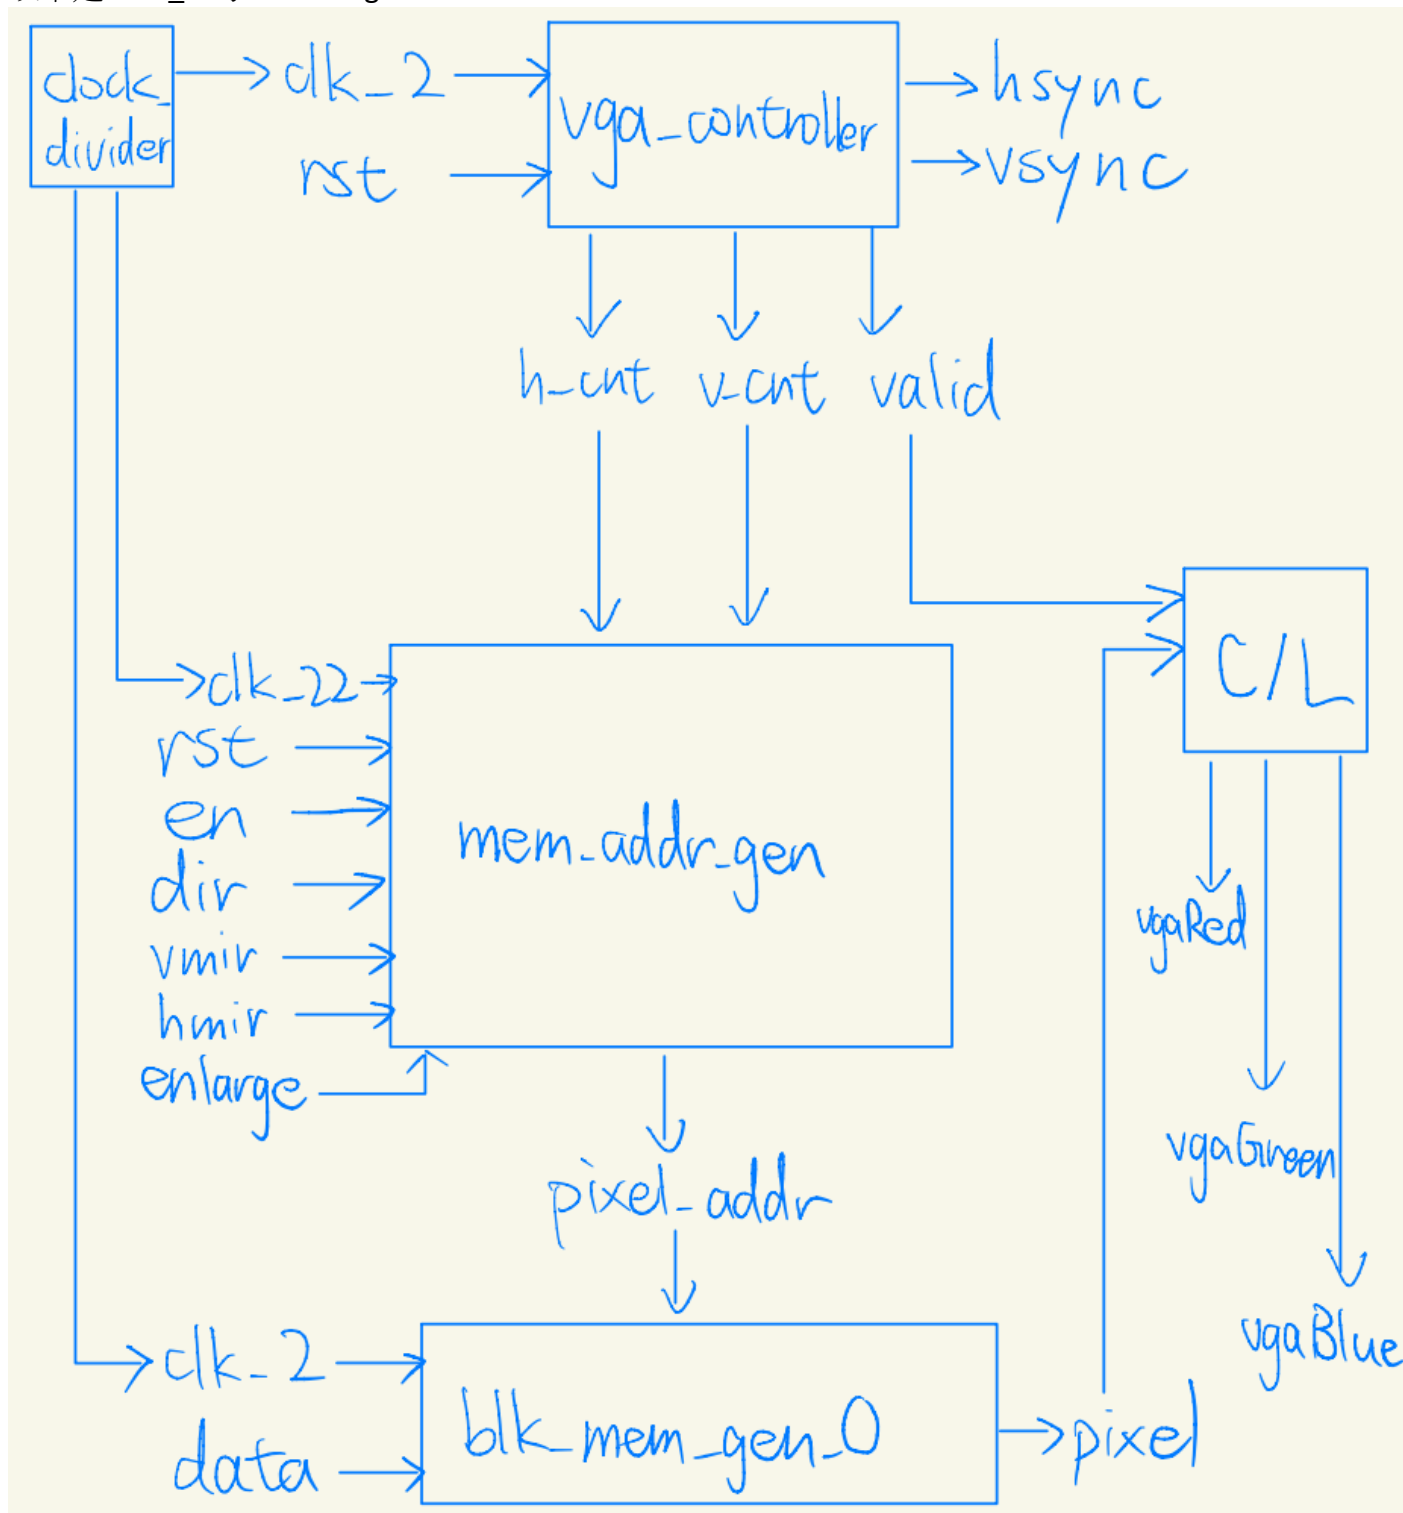 clock_
divider
clk_2
rst
vga_controller
hsync
vsync
h_cnt
v_cnt
valid
clk_22
rst
en
dir
vmir
hmir
enlarge
mem_addr_gen
C/L
vgaRed
vgaGreen
vgaBlue
pixel_addr
clk_2
data
blk_mem_gen_0
pixel